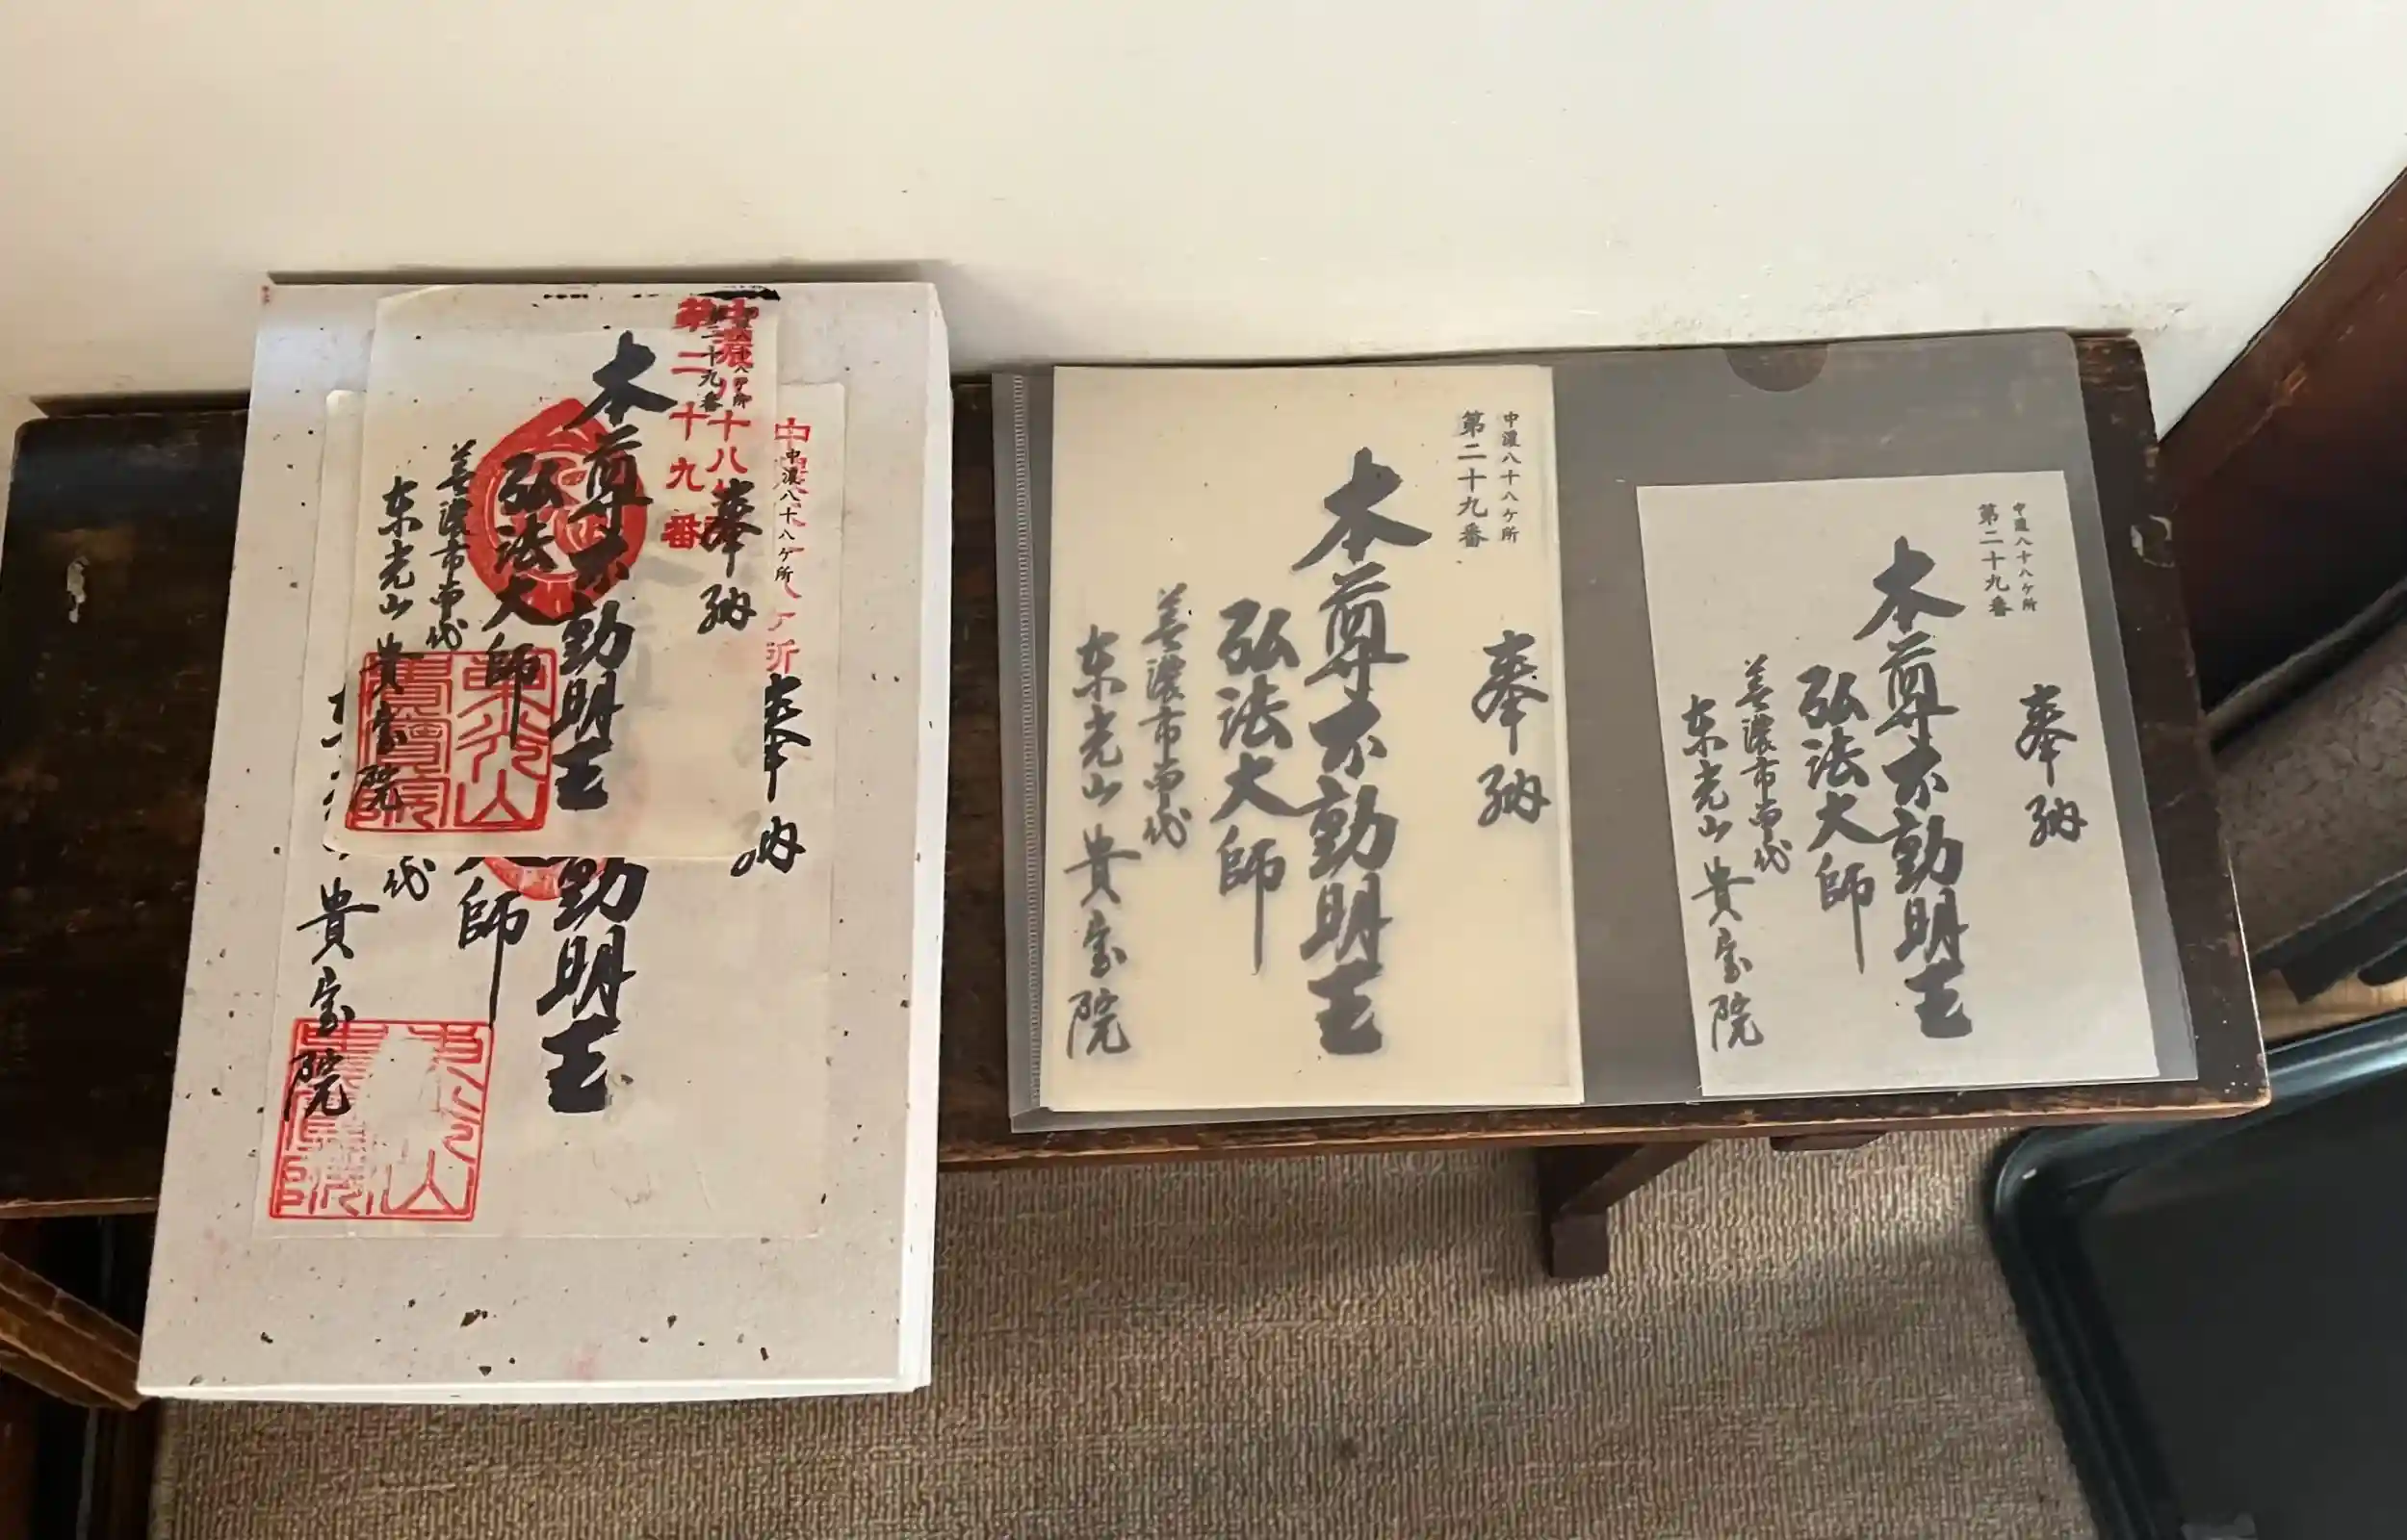 中濃八十八ケ所
第二十九番
奉納
本尊不動明王
弘法大師
美濃市常代
東光山貴宝院
中濃八十八ケ所
第二十九番
奉納
本尊不動明王
弘法大師
東光山貴宝院
東光山
貴寶院
中濃八十八ケ所
奉納
動明王
師
代
貴宝院
中濃八十八ケ所
第二十九番
奉納
本尊不動明王
弘法大師
東光山貴宝院
中濃八十八ケ所
第二十九番
奉納
本尊不動明王
弘法大師
東光山貴宝院